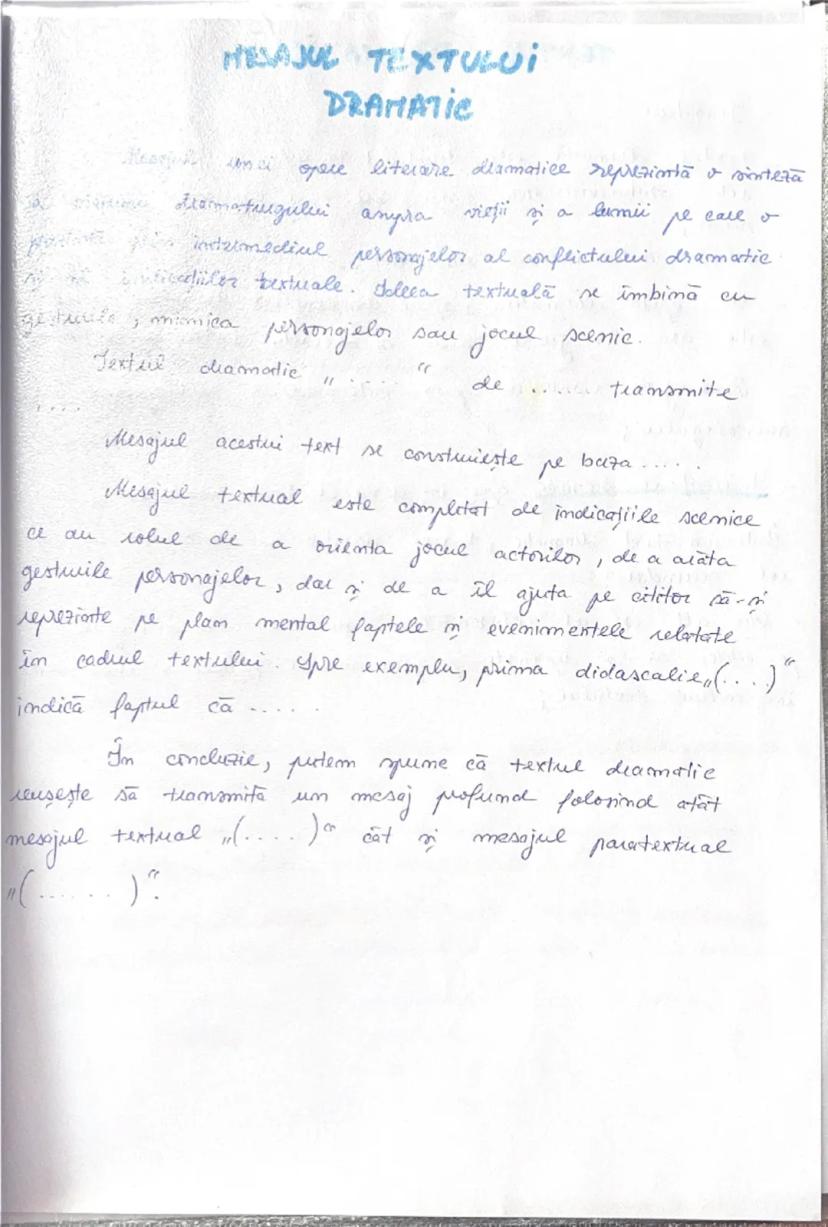 MESAJUL TEXTULUI
DRAMATIC
Mesajul unei opere literare dramatice reprezintă o sinteză
a viziunii dramaturgului asupra vieții și a lumii pe care o
prezintă prin intermediul personajelor al conflictului dramatic
și al indicațiilor textuale. Ideea textuală se îmbină cu
gesturile, mimica personajelor sau jocul scenic.
Textul dramatic „....." de ..... transmite
....
Mesajul acestui text se construiește pe baza ....
Mesajul textual este completat de indicațiile scenice
ce au rolul de a orienta jocul actorilor, de a arăta
gesturile personajelor, dar și de a îl ajuta pe cititor să-și
reprezinte pe plan mental faptele și evenimentele relatate
în cadrul textului. Spre exemplu, prima didascalie „(....)"
indică faptul că ......
În concluzie, putem spune că textul dramatic
reușește să transmită un mesaj profund folosind atât
mesajul textual „(....)" cât și mesajul paratextual
„(......)".